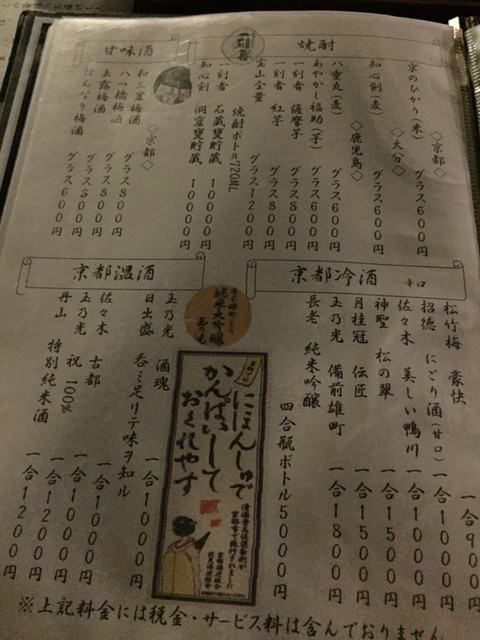 焼酎
◇京都◇
京のひかり(米) グラス600円
◇大分◇
知心剣(麦) グラス600円
◇鹿児島◇
八重丸(麦) グラス600円
あやかし福助(芋) グラス600円
一刻者 薩摩芋 グラス800円
一刻者 紅芋 グラス800円
宝山全量 グラス1200円
焼酎ボトル720ML
一刻者 石蔵甕貯蔵 10000円
知心剣 洞窟甕貯蔵 10000円
甘味酒
◇京都◇
和三盆梅酒 グラス800円
八ツ橋梅酒 グラス800円
玉露梅酒 グラス800円
はんなり梅酒 グラス600円
京都冷酒
辛口
松竹梅 豪快 一合900円
招徳 にごり酒(甘口) 一合1000円
佐々木 美しい鴨川 一合1000円
神聖 松の翠 一合1500円
月桂冠 伝匠 一合1500円
玉乃光 備前雄町 一合1800円
長老 純米吟醸
四合瓶ボトル5000円
純米大吟醸
玉乃光
京都温酒
玉乃光 酒魂
日出盛 呑ミ足リテ味ヲ知ル 一合1000円
佐々木 古都 一合1000円
玉乃光 祝100% 一合1200円
丹山 特別純米酒 一合1200円
にほんしゅで
かんぱいして
おくれやす
清酒普及促進条例が
京都市で施行されました
京都酒造組合
伏見酒造組合
※上記料金には税金・サービス料は含んでおりません